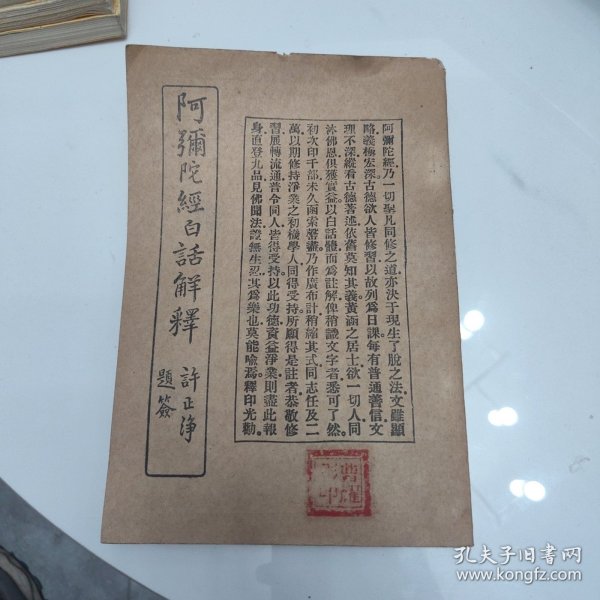 阿彌陀經白話解釋
許正淨
題簽
阿彌陀經乃一切聖凡同修之道亦決于現生了脫之法文雖顯
略義極宏深古德欲人皆修習以故列爲日課每有普通善信文
理不深縱看古德著述依舊莫知其義黃涵之居士欲一切人同
沐佛恩俱獲實益以白話體而爲註解俾稍識文字者悉可了然
初次印千部未久函索罄盡乃作廣布計稍縮其式同志任及二
萬以期修持淨業之初機學人同得受持所願得是註者恭敬修
習展轉流通普令同人皆得受持以此功德資益淨業則盡此報
身直登九品見佛聞法證無生忍其爲樂也莫能喻焉釋印光勸
孔夫子旧书网
www.kongfz.com